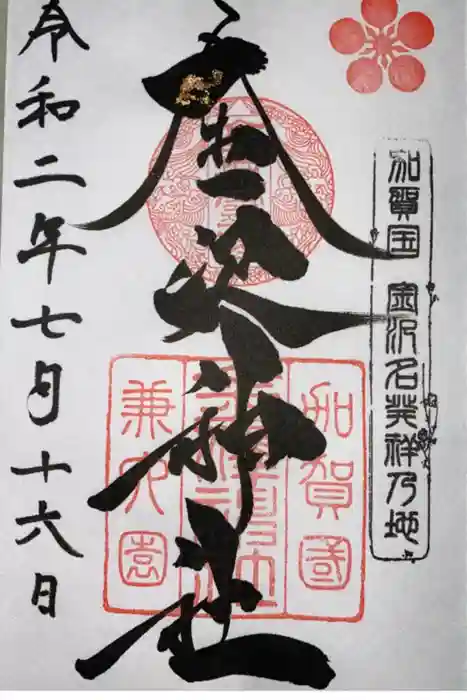 加賀国 金沢名発祥乃地
金澤神社
加賀國
兼六園
令和二年七月十六日